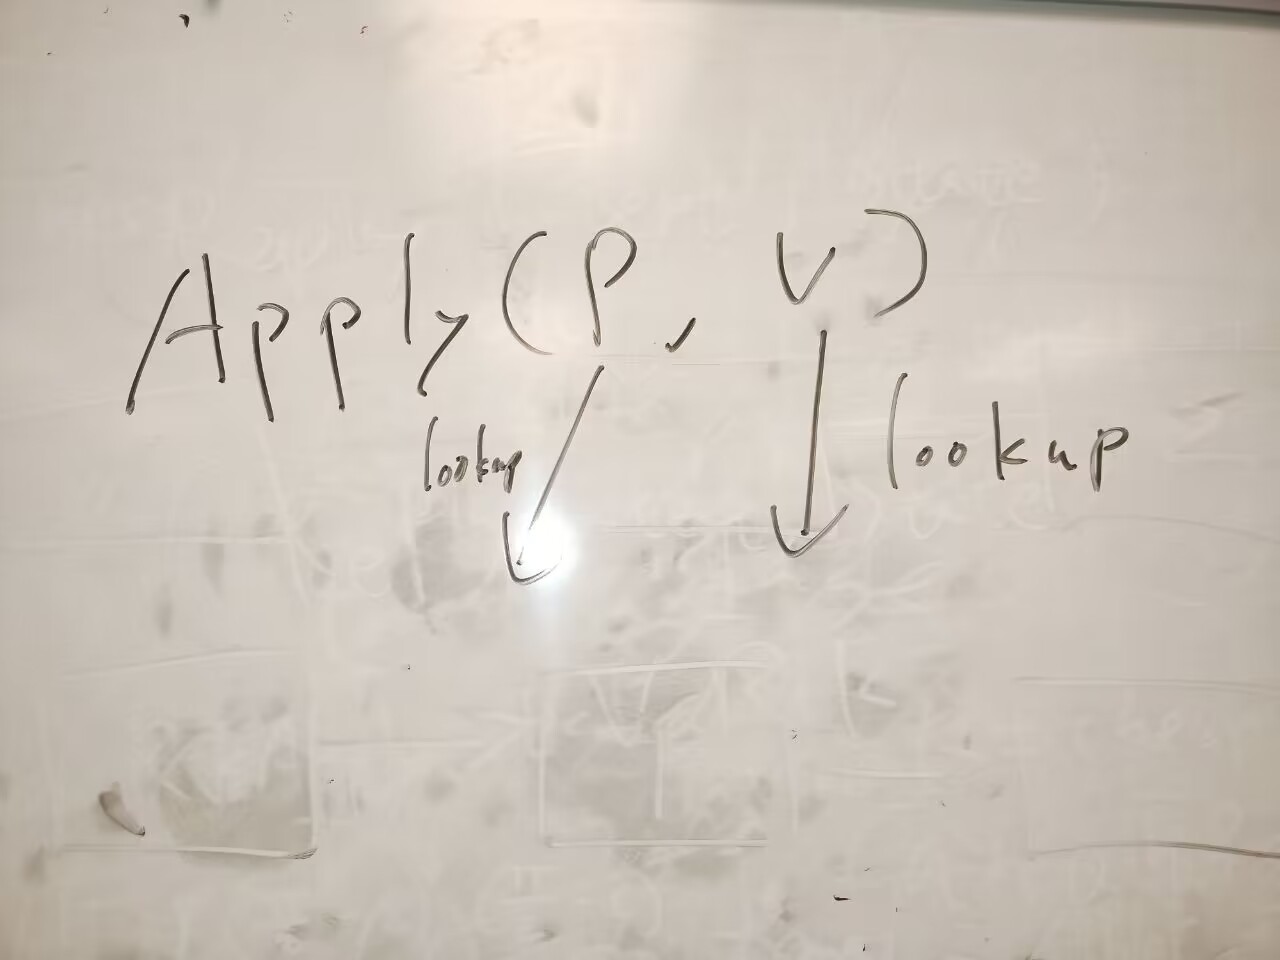 Apply(P, v)
lookup
lookup